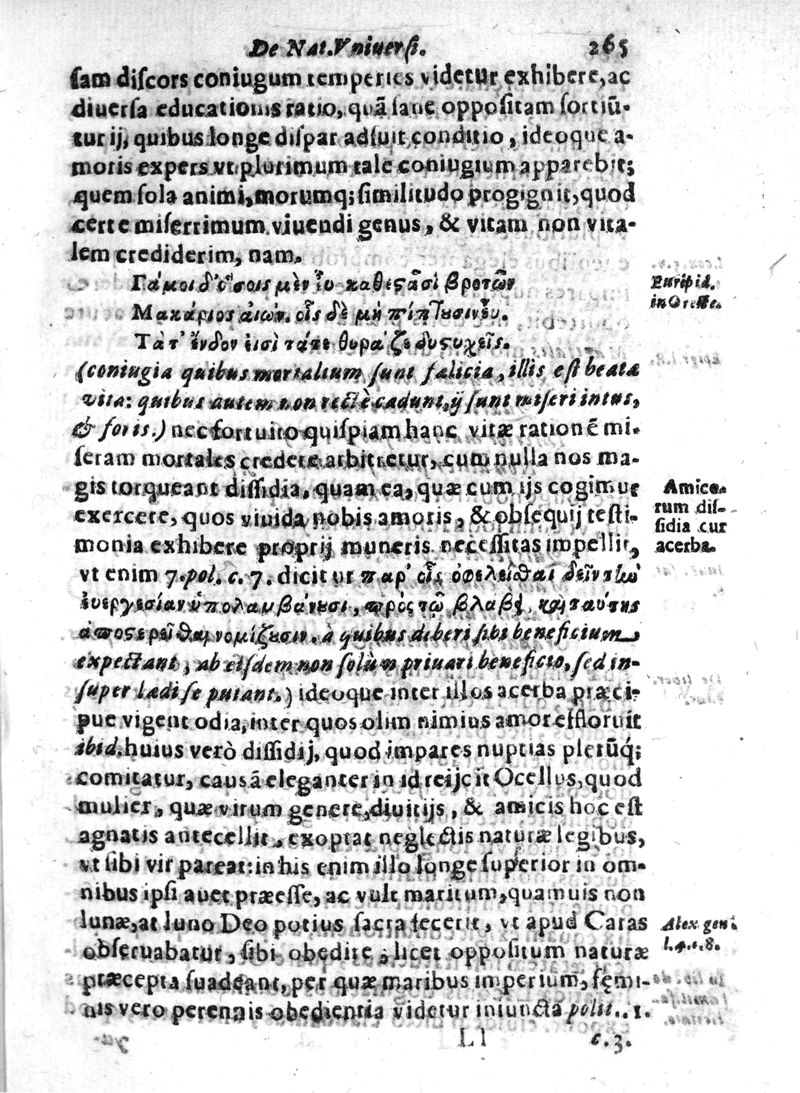 De Nat. Vniuersi. 265
sam discors coniugum temperies videtur exhibere, ac
diuersa educationis ratio, quā sane oppositam sortiū-
tur ij, quibus longe dispar adfuit conditio, ideoque a-
moris expers vt plurimum tale coniugium apparebit;
quem sola animi, morumq; similitudo progignit, quod
certe miserrimum viuendi genus, & vitam non vita-
lem crediderim, nam.
Γάμοι δ' ὅσοις μὲν εὖ καθεστᾶσι βροτῶν
Μακάριος αἰών. οἷς δὲ μὴ πίπτουσιν εὖ.
Τὰ τ' ἔνδον εἰσὶ τά τε θύραζε δυστυχεῖς.
Euripid.
in Oreste.
(coniugia quibus mortalium sunt falicia, illis est beata
vita: quibus autem non rectè cadunt, ij sunt miseri intus,
& foris.) nec fortuito quispiam hanc vitæ rationē mi-
seram mortales credere arbitretur, cum nulla nos ma-
gis torqueant dissidia, quam ea, quæ cum ijs cogimur
exercere, quos viuida nobis amoris, & obsequij testi-
monia exhibere proprij muneris necessitas impellit,
Amico-
rum dis-
sidia cur
acerba.
vt enim 7. pol. c. 7. dicitur παρ' οἷς ὀφείλεσθαι δεῖν τὴν
εὐεργεσίαν ὑπολαμβάνουσι, πρὸς τῷ βλάβει καὶ ταύτης
ἀποστερεῖσθαι νομίζουσιν. à quibus deberi sibi beneficium
expectant, ab eisdem non solùm priuari beneficio, sed in-
super ladi se putant.) ideoque inter illos acerba præci-
pue vigent odia, inter quos olim nimius amor effloruit
ibid. huius verò dissidij, quod impares nuptias plerūq;
comitatur, causā eleganter in id reijcit Ocellus, quod
mulier, quæ virum genere, diuitijs, & amicis hoc est
agnatis antecellit, exoptat neglectis naturæ legibus,
vt sibi vir pareat: in his enim illo longe superior in om-
nibus ipsi auet præesse, ac vult maritum, quamuis non
lunæ, at Iuno Deo potius sacra fecerit, vt apud Caras
obseruabatur, sibi obedire, licet oppositum naturæ
præcepta suadeant, per quæ maribus imperium, fēmi-
nis vero perennis obedientia videtur iniuncta polit.. 1.
Alex gen.
l. 4. c. 8.
Ll c. 3.